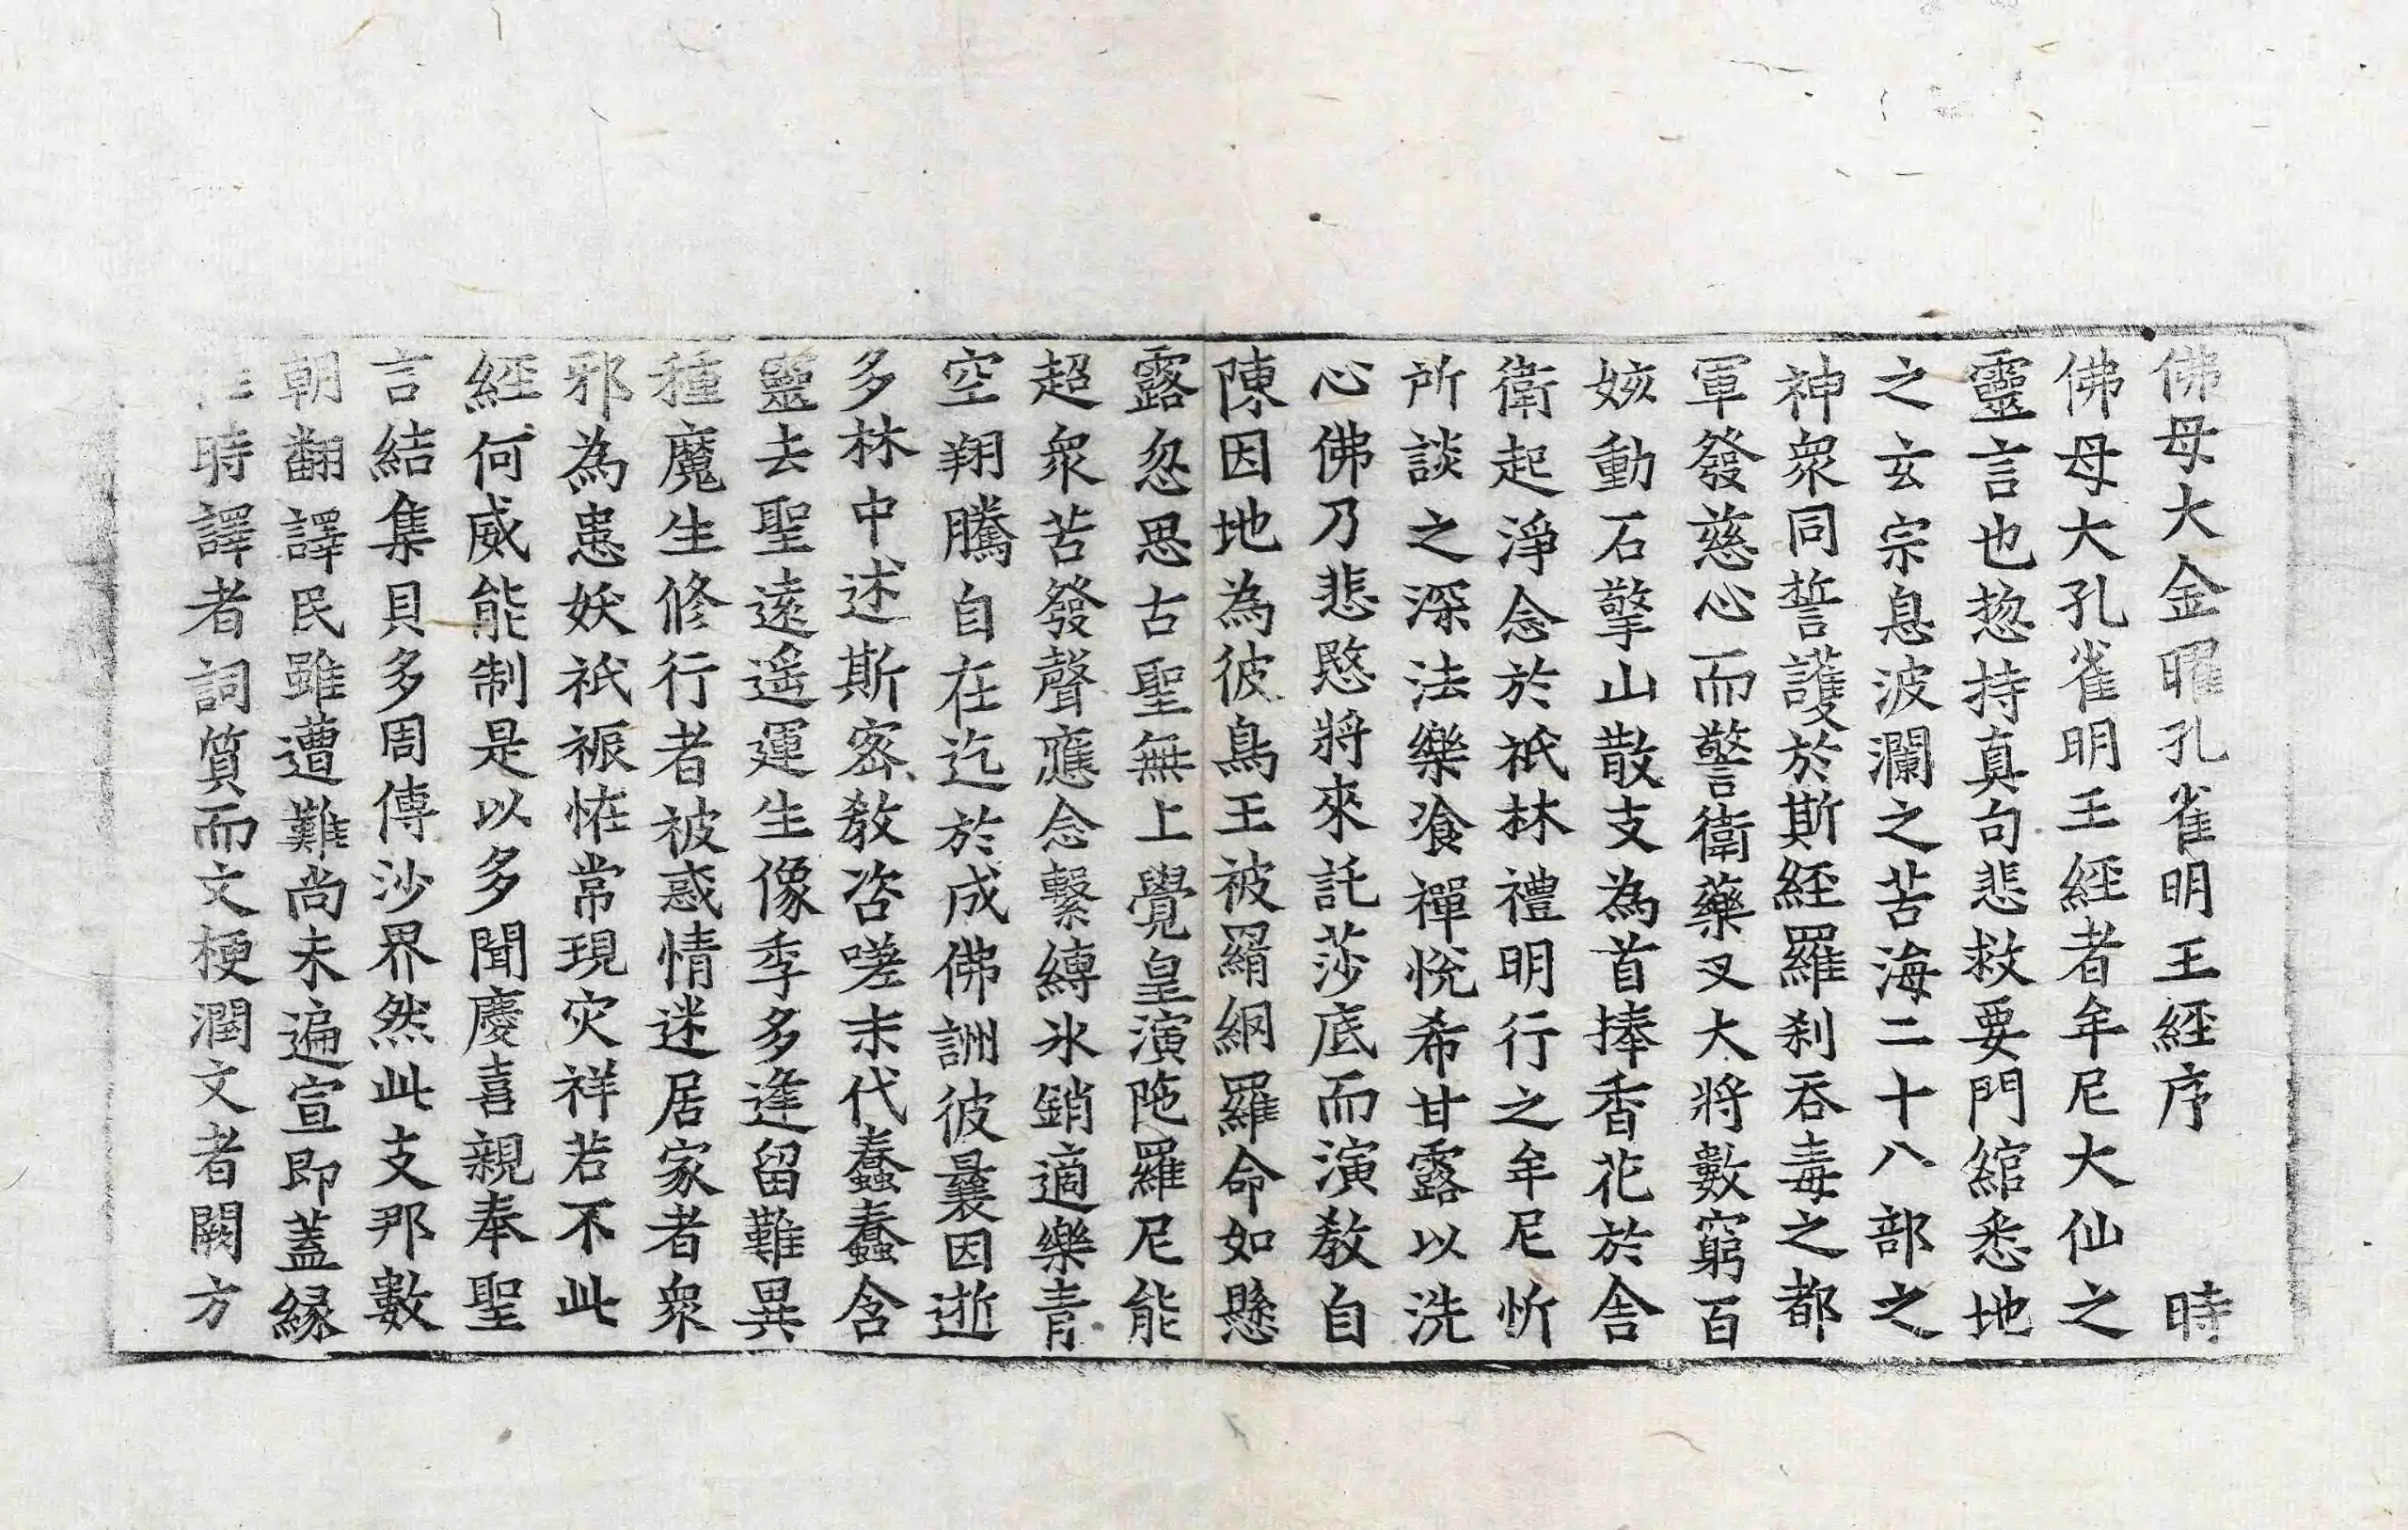 佛母大金曜孔雀明王經序　時
佛母大孔雀明王經者牟尼大仙之
靈言也惣持真句悲救要門綰悉地
之玄宗息波瀾之苦海二十八部之
神衆同誓護於斯經羅刹吞毒之都
軍發慈心而警衛藥叉大將數窮百
姟動石擎山散支為首捧香花於舍
衛起淨念於祇林禮明行之牟尼忻
所談之深法樂飡禪悅希甘露以洗
心佛乃悲愍將來託莎底而演教自
陳因地為彼鳥王被羂網羅命如懸
露忽思古聖無上覺皇演陁羅尼能
超衆苦發聲應念繫縛氷銷適樂青
空翔騰自在迄於成佛詶彼曩因逝
多林中述斯密教咨嗟末代蠢蠢含
靈去聖遠遥運生像季多逢留難異
種魔生修行者被惑情迷居家者衆
邪為患妖祇裖恠常現灾祥若不此
經何威能制是以多聞慶喜親奉聖
言結集貝多周傳沙界然此支那數
朝翻譯民雖遭難尚未遍宣即蓋緣
往時譯者詞質而文梗潤文者闕方